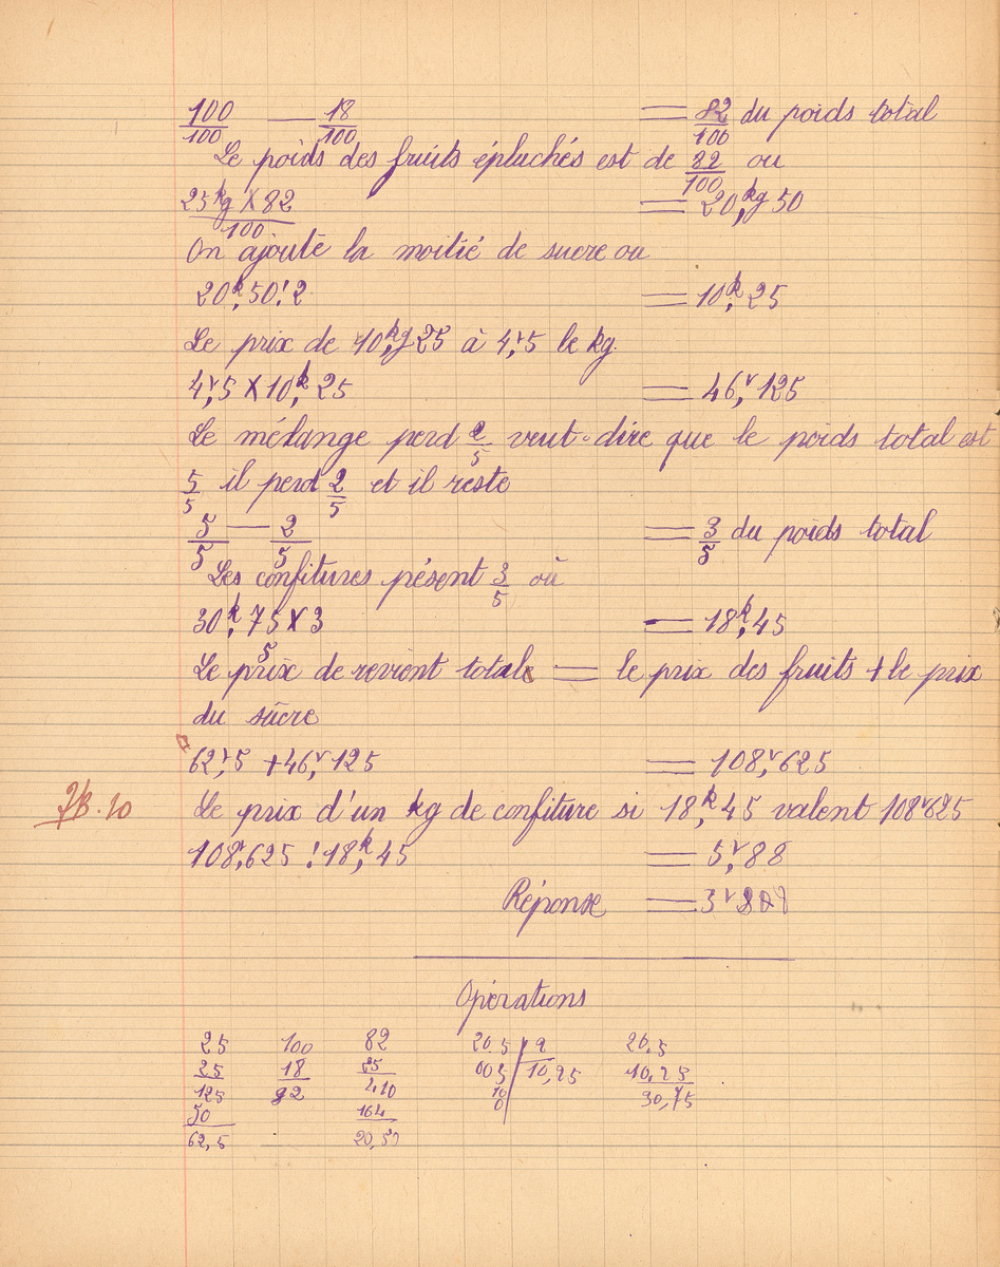 100/100 — 18/100 = 82/100 du poids total
Le poids des fruits épluchés est de 82/100 ou
25kg X 82/100 = 20,kg 50
On ajoute la moitié de sucre ou
20,k 50 : 2 = 10,k 25
Le prix de 10,kg 25 à 4,r5 le kg.
4,r5 X 10,k 25 = 46,r 125
Le mélange perd 2/5 veut-dire que le poids total est
5/5 il perd 2/5 et il reste
5/5 — 2/5 = 3/5 du poids total
Les confitures pésent 3/5 où
30,k 75 X 3/5 = 18,k 45
Le prix de revient total = le prix des fruits + le prix
du sucre
62,r5 + 46,r 125 = 108,r 625
JB. 10
Le prix d'un kg de confiture si 18,k 45 valent 108r625
108,r625 : 18,k 45 = 5,r 88
Réponse =
Opérations
25 100 82 20 5 2 20,5
25 18 25 00 5 10,25 10,25
125 82 410 10 30,75
50 164 0
62,5 20,50